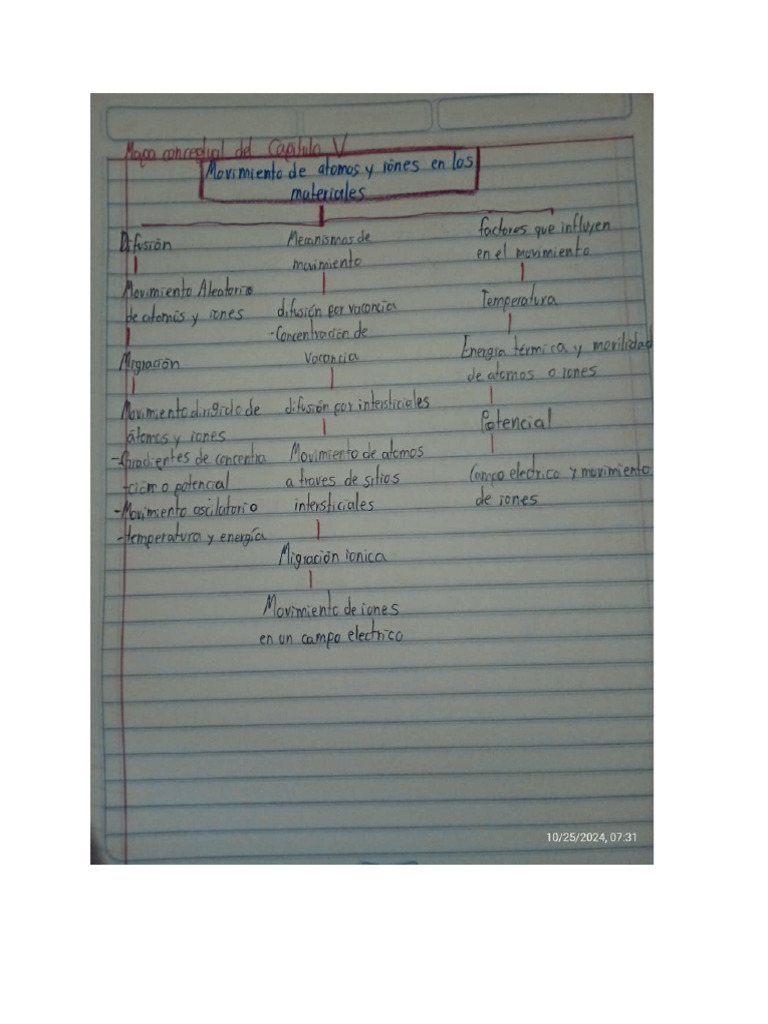 Mapa conceptual del Capitulo V
Movimiento de atomos y iones en los
materiales
Difusión
Movimiento Aleatorio
de atomis y iones
Migración
Movimiento dirigido de
átomos y iones
-Gradientes de concentra
ción o potencial
-Movimiento oscilatorio
-temperatura y energía
Mecanismos de
movimiento
difusión por vacancia
-Concentración de
vacancia
difusión por intersticiales
Movimiento de atomos
a traves de sitios
intersticiales
Migración ionica
Movimiento de iones
en un campo electrico
factores que influyen
en el movimiento
Temperatura
Energía térmica y movilidad
de atomos o iones
Potencial
Campo electrico y movimiento
de iones
10/25/2024, 07:31